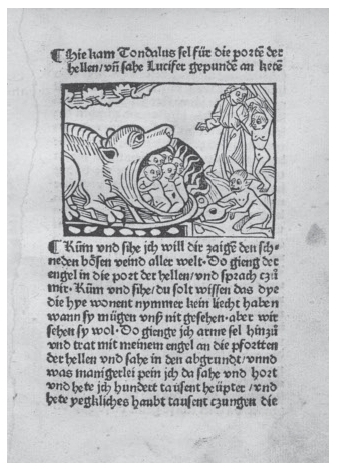 ¶ Hie kam Tondalus sel für die portē der
hellen/vñ sahe Lucifer gepundē an ketē
¶ Kūm vnd sihe jch will dir zaigē den sch-
neden bȫsen veind aller welt·Do gieng der
engel in die port der hellen/vnd sprach czů
mir·Kūm vnd sihe/du solt wissen das dye
die hye wonent nymmer kein liecht haben
wann sy mügen vnß nit gesehen·aber wir
sehen sy wol·Do gienge jch arme sel hinzů
vnd trat mit meinem engel an die pfortten
der hellen vnd sahe in den abgrundt/vnnd
was manigerlei pein jch da sahe vnd hort
vnd hete jch hundert tausent heüpter/vnd
hete yegkliches haubt tausent czungen die